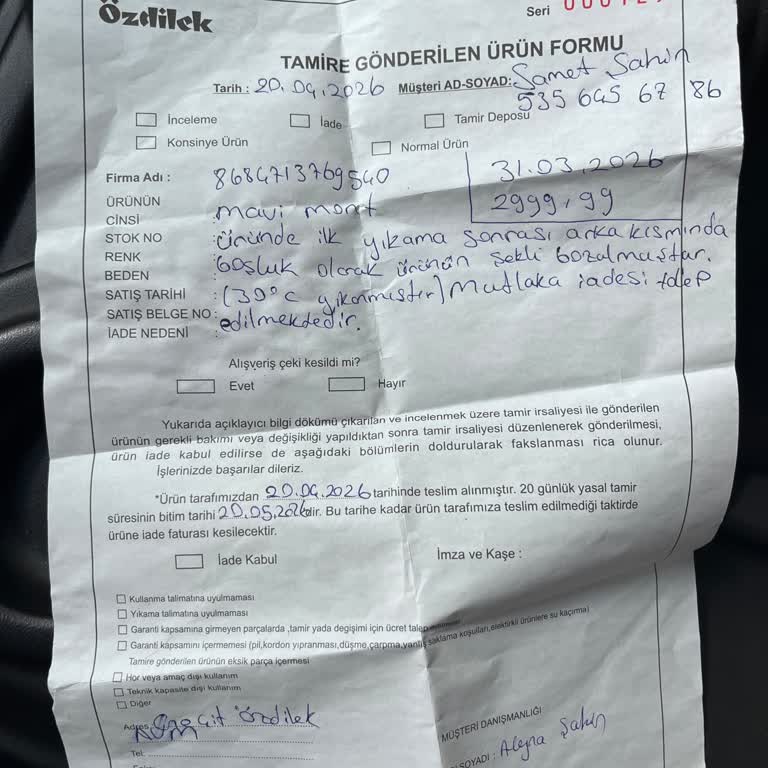 Özdilek
Seri
TAMİRE GÖNDERİLEN ÜRÜN FORMU
Tarih : 20.04.2026 Müşteri AD-SOYAD: Samet Şahin
535 645 67 86
İnceleme İade Tamir Deposu
Konsinye Ürün Normal Ürün
Firma Adı : 8684713769540 31.03.2026
ÜRÜNÜN
CİNSİ : mavi mont 2999,99
STOK NO : Üründe ilk yıkama sonrası arka kısmında
RENK : boşluk olarak ürünün şekli bozulmuştur.
BEDEN
SATIŞ TARİHİ : (30°C yıkanmıştır) Mutlaka iadesi talep
SATIŞ BELGE NO : edilmektedir.
İADE NEDENİ :
Alışveriş çeki kesildi mi?
Evet Hayır
Yukarıda açıklayıcı bilgi dökümü çıkarılan ve incelenmek üzere tamir irsaliyesi ile gönderilen
ürünün gerekli bakımı veya değişikliği yapıldıktan sonra tamir irsaliyesi düzenlenerek gönderilmesi,
ürün iade kabul edilirse de aşağıdaki bölümlerin doldurularak fakslanması rica olunur.
İşlerinizde başarılar dileriz.
*Ürün tarafımızdan 20.04.2026 tarihinde teslim alınmıştır. 20 günlük yasal tamir
süresinin bitim tarihi 20.05.2026dır. Bu tarihe kadar ürün tarafımıza teslim edilmediği taktirde
ürüne iade faturası kesilecektir.
İade Kabul İmza ve Kaşe :
Kullanma talimatına uyulmaması
Yıkama talimatına uyulmaması
Garanti kapsamına girmeyen parçalarda ,tamir yada değişimi için ücret talep
Garanti kapsamını içermemesi (pil,kordon yıpranması,düşme,çarpma,yanlış saklama koşulları,elektirkli ürünlere su kaçırma)
Tamire gönderilen ürünün eksik parça içermesi
Hor veya amaç dışı kullanım
Teknik kapasite dışı kullanım
Diğer
Adres Özdilek
Tel:
MÜŞTERİ DANIŞMANLIĞI
SOYADI : Aleyna Şahin